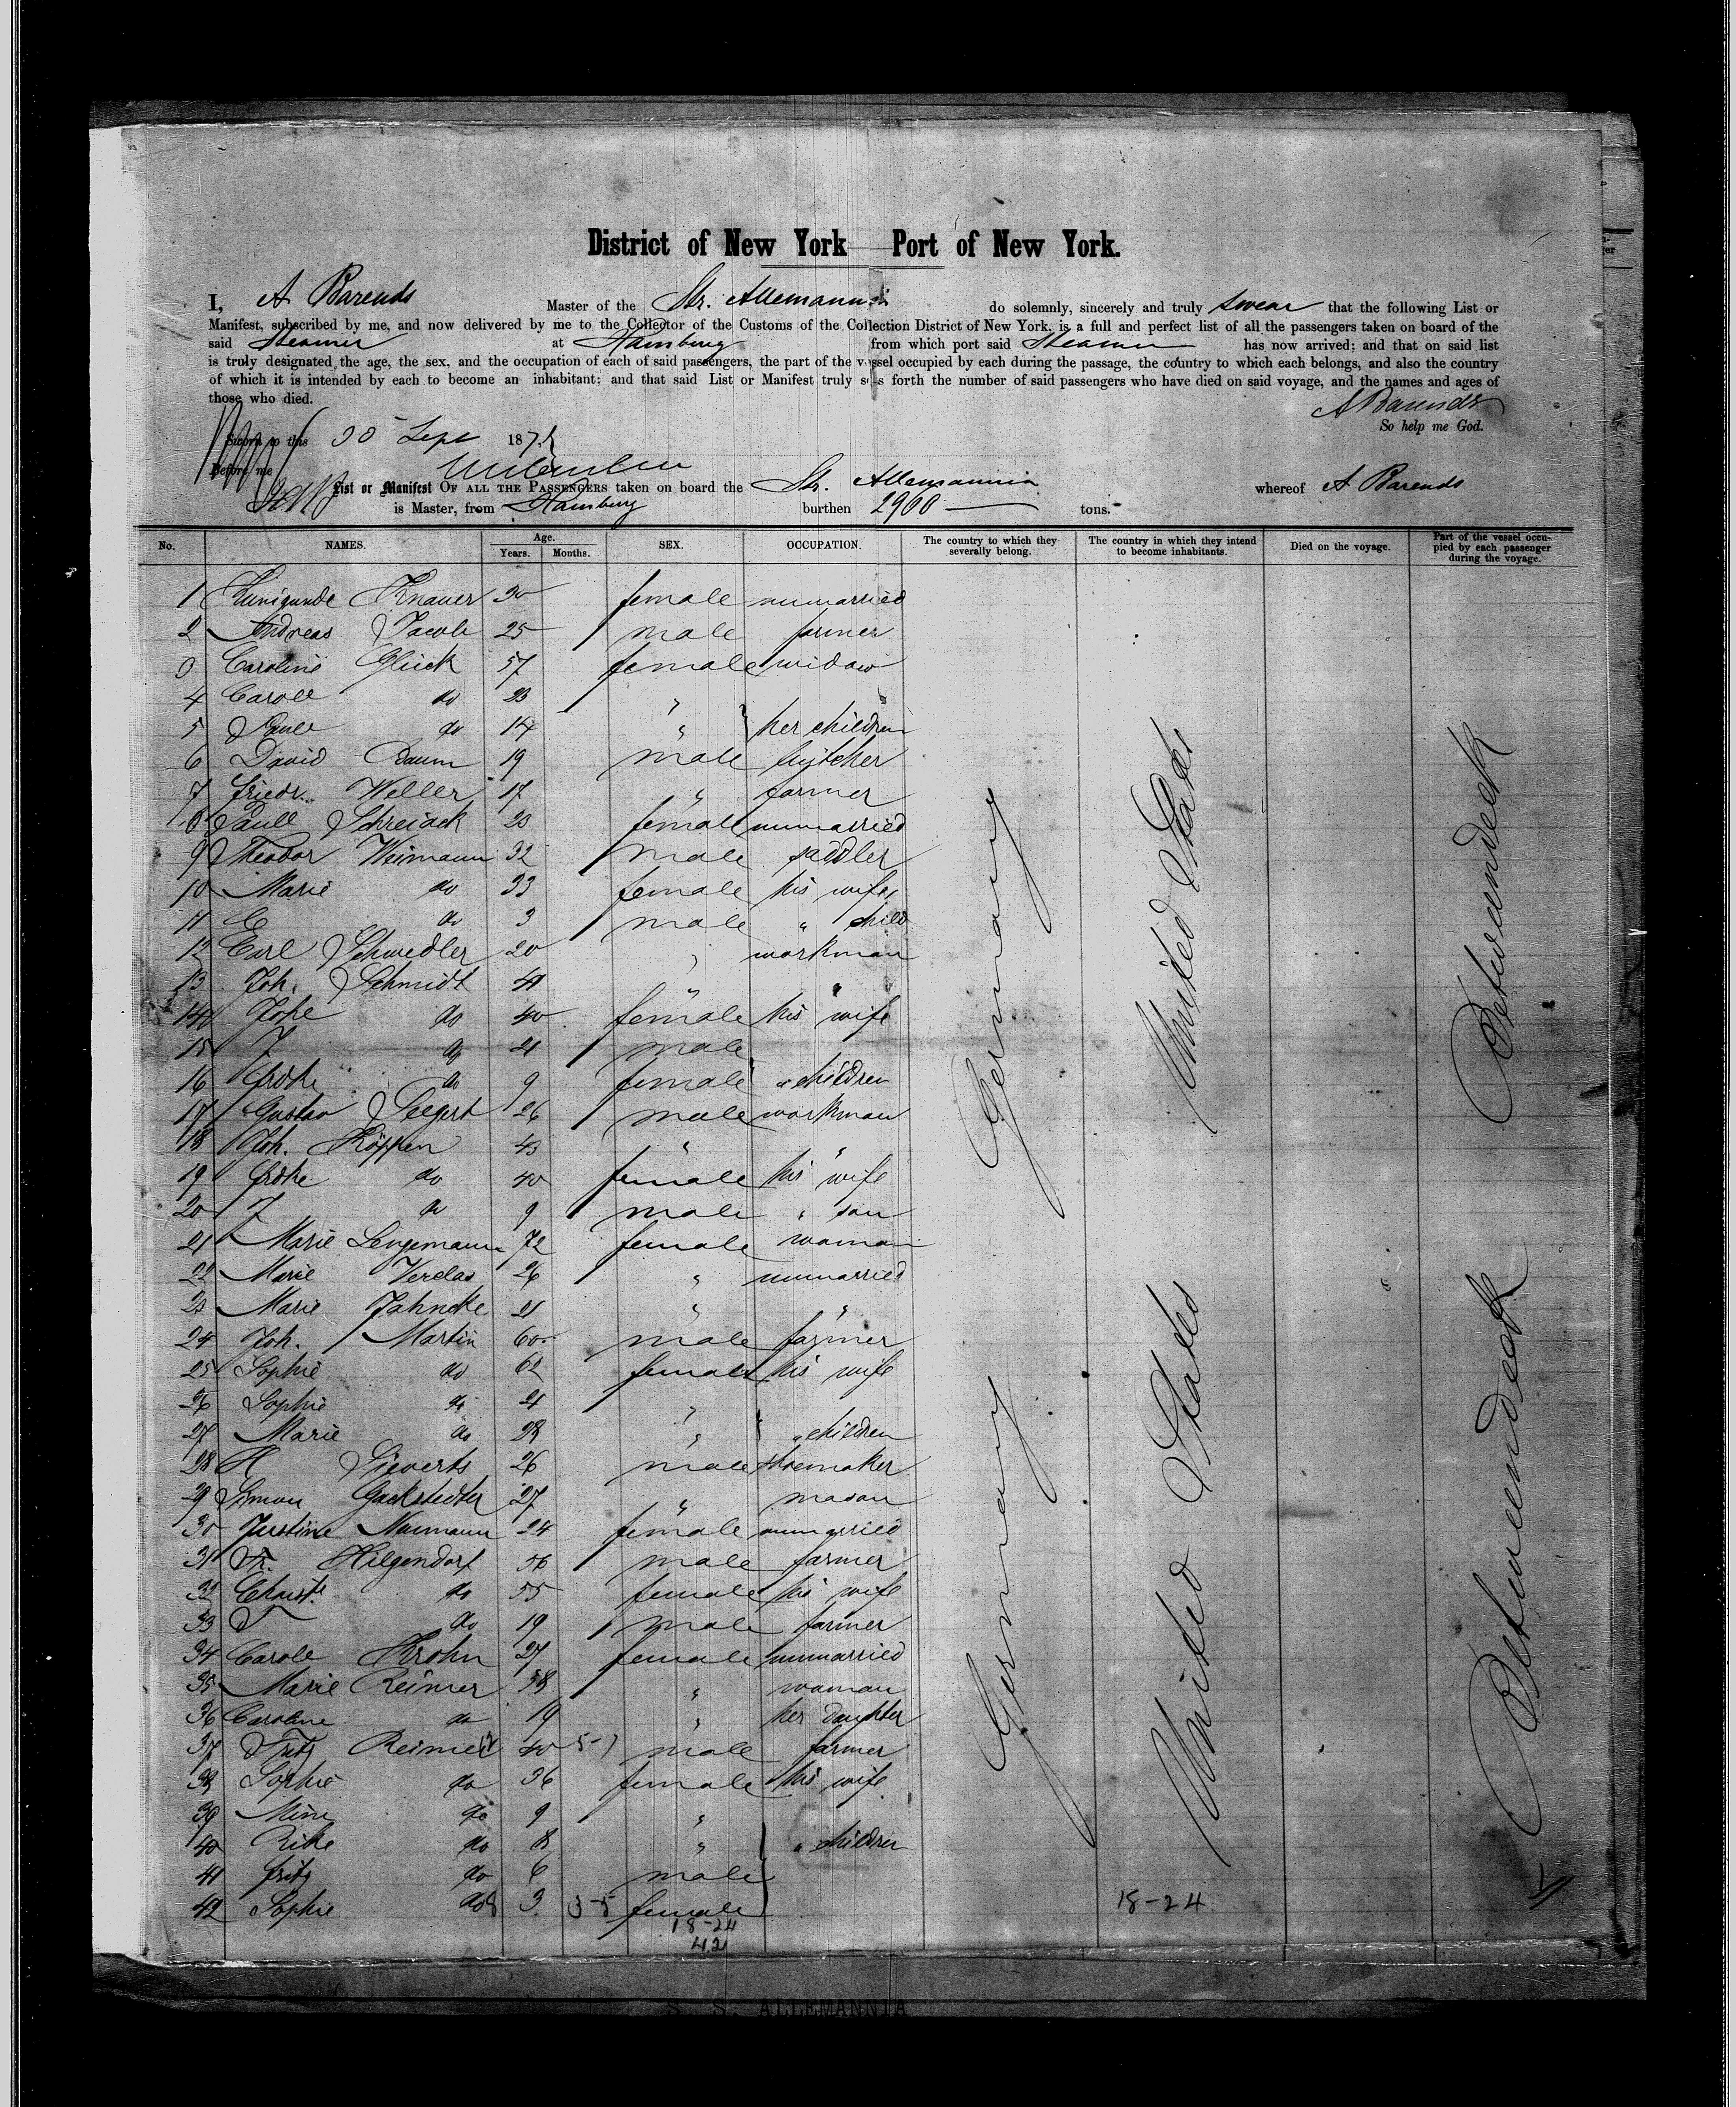 District of New York Port of New York.
I, A Barends Master of the Str. Allemannia do solemnly, sincerely and truly swear that the following List or
Manifest, subscribed by me, and now delivered by me to the Collector of the Customs of the Collection District of New York, is a full and perfect list of all the passengers taken on board of the
said Steamer at Hamburg from which port said Steamer has now arrived; and that on said list
is truly designated the age, the sex, and the occupation of each of said passengers, the part of the vessel occupied by each during the passage, the country to which each belongs, and also the country
of which it is intended by each to become an inhabitant; and that said List or Manifest truly sets forth the number of said passengers who have died on said voyage, and the names and ages of
those who died.
A Barends
So help me God.
Sworn to this 30 Sept 187
Before me
List or Manifest OF ALL THE PASSENGERS taken on board the Str. Allemannia whereof A Barends
is Master, from Hamburg burthen 2900 tons.
No. NAMES. Age. Years. Months. SEX. OCCUPATION. The country to which they severally belong. The country in which they intend to become inhabitants. Died on the voyage. Part of the vessel occupied by each passenger during the voyage.
1 Kunigunde Knauer 30 female unmarried
2 Andreas Jacob 25 male farmer
3 Caroline Glück 57 female widow
4 Caroll do 23 "
5 Paull do 14 " her children
6 David Baum 19 male
7 Friedr. Weller 17 " farmer
8 Paull Schreiack 23 female unmarried
9 Theodor Weimann 32 male saddler
10 Marie do 33 female his wife
11 E do 3 male " child
12 Carl Schwedler 20 " workman
13 Joh. Schmidt 41 " "
14 do 40 female his wife
15 J do 21 male
16 Frdke do 9 female " children
17 Gustav Seegert 26 male workman
18 Joh. Köppen 43 " "
19 Frdke do 40 female his wife
20 J do 9 male " son
21 Marie Lengemann 72 female woman
22 Marie Verclas 26 " unmarried
23 Marie Jahncke 21 " "
24 Joh. Martin 60 male farmer
25 Sophie do 62 female his wife
26 Sophie do 21 "
27 Marie do 28 " " children
28 H Sieverts 26 male shoemaker
29 Simon Gackstedter 27 " mason
30 Justine Naumann 24 female unmarried
31 Fr. Hilgendorf 56 male farmer
32 Christ. do 55 female his wife
33 F do 19 male farmer
34 Carole Krohn 27 female unmarried
35 Marie Reimer 58 " woman
36 Caroline do 19 " her daughter
37 Fritz Reimer 40 5-7 male farmer
38 Sophie do 36 female his wife
39 Mine do 9 "
40 Rike do 8 " " children
41 Fritz do 6 male
42 Sophie do 3 3-5 female
18-24
42
Germany
Germany
United States
United States
18-24
Betweendeck
Betweendeck
S. S. ALLEMANNIA